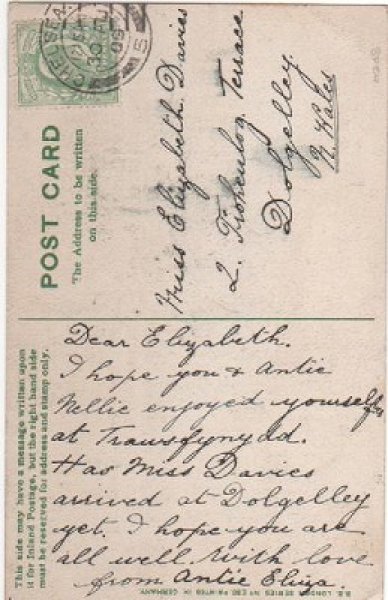 CHELSEA. S.W
30 AU
09
5
POST CARD
The Address to be written
on this side.
Miss Elizabeth Davies
2. Terrace
Dolgelley
N. Wales
This side may have a message written upon
it for Inland Postage, but the right hand side
must be reserved for address and stamp only.
Dear Elizabeth.
I hope you & Antie
Nellie enjoyed yourselfs
at Trawsfynydd.
Has Miss Davies
arrived at Dolgelley
yet. I hope you are
all well with love
from Antie Eliza.
LONDON SERIES PRINTED IN GERMANY